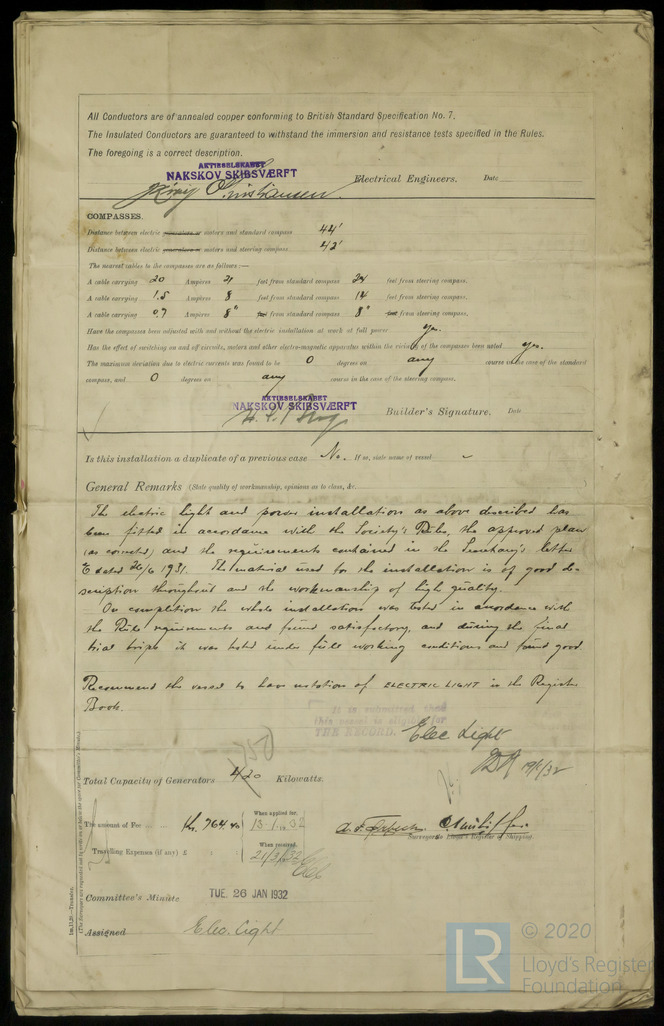 All Conductors are of annealed copper conforming to British Standard Specification No. 7.
The Insulated Conductors are guaranteed to withstand the immersion and resistance tests specified in the Rules.
The foregoing is a correct description.
AKTIESELSKABET
NAKSKOV SKIBSVÆRFT Electrical Engineers. Date
COMPASSES.
Distance between electric generators or motors and standard compass 44'
Distance between electric generators or motors and steering compass 42'
The nearest cables to the compasses are as follows:—
A cable carrying 20 Ampères 21 feet from standard compass 24 feet from steering compass.
A cable carrying 1.5 Ampères 8 feet from standard compass 14 feet from steering compass.
A cable carrying 0.7 Ampères 8" feet from standard compass 8" feet from steering compass.
Have the compasses been adjusted with and without the electric installation at work at full power yes.
Has the effect of switching on and off circuits, motors and other electro-magnetic apparatus within the vicinity of the compasses been noted yes.
The maximum deviation due to electric currents was found to be 0 degrees on any course in the case of the standard
compass, and 0 degrees on any course in the case of the steering compass.
AKTIESELSKABET
NAKSKOV SKIBSVÆRFT Builder's Signature. Date
Is this installation a duplicate of a previous case No. If so, state name of vessel
General Remarks (State quality of workmanship, opinions as to class, &c.
The electric light and power installation as above described has
been fitted in accordance with the Society's Rules, the approved plan
(as corrected) and the requirements contained in the Secretary's letter
E dated 26/6 1931. The material used for the installation is of good de-
scription throughout and the workmanship of high quality.
On completion the whole installation was tested in accordance with
the Rule requirements and found satisfactory, and during the final
trial trips it was tested under full working conditions and found good
Recommend the vessel to have notation of ELECTRIC LIGHT in the Register
Book.
It is submitted that
this vessel is eligible for
THE RECORD. Elec Light
19/1/32
Total Capacity of Generators 420 Kilowatts.
The amount of Fee Kr. 764.40 When applied for, 13.1.1932
Travelling Expenses (if any) £ When received, 21/3/32
Surveyor to Lloyd's Register of Shipping.
Committee's Minute TUE. 26 JAN 1932
Assigned Elec. Light
1m,11,30.—Transfer.
(The Surveyors are requested not to write on or below the space for Committee's Minute.)
LR © 2020
Lloyd's Register
Foundation